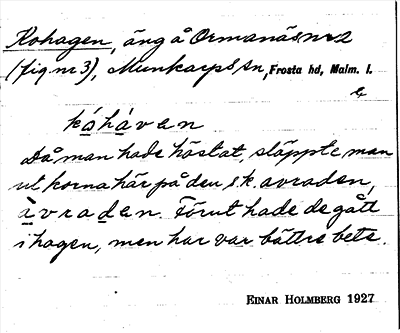 Kohagen, äng å Ormanäs nr 2
(fig nr 3), Munkarps sn, Frosta hd, Malm. l.
kóháven
Då man hade höstat, släppte man
ut korna här på den s.k. avraden,
àvraden. Förut hade de gått
i hagen, men här var bättre bete.
EINAR HOLMBERG 1927